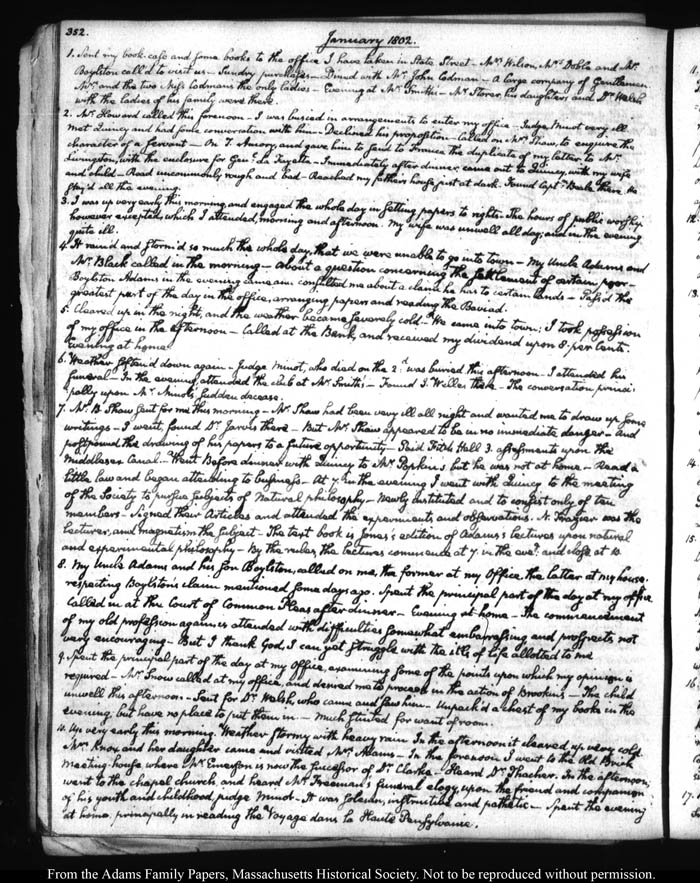 352.
January 1802.
1. Sent my book-case and some books to the office I have taken in State Street — Mrs. Wilson, Mrs. Doble and Mr.
Boylston call'd to visit us — Sundry purchases — Dined with Mr. John Codman — A large company of Gentlemen
Mrs. and the two Miss Codmans the only ladies — Evening at Mr. Smith's — Mr. Storer, his daughters, and Dr. Welsh
with the ladies of his family were there.
2. Mr. Howard called this forenoon — I was busied in arrangements to enter my office — Judge Minot very ill
Met Quincy and had some conversation with him — Declined his proposition — Called on Mrs. Shaw, to enquire the
character of a servant — On T. Amory, and gave him to send to France the duplicate of my letter to Mr.
Livingston, with the enclosure for Genl. La Fayette — Immediately after dinner, came out to Quincy, with my wife
and child — Road uncommonly rough and bad — Reached my father's house just at dark. Found Captn. Beale there. He
stay'd all the evening.
3. I was up very early this morning, and engaged the whole day in setting papers to rights — The hours of public worship
however excepted, which I attended, morning and afternoon. My wife was unwell all day; and in the evening
quite ill.
4. It rain'd and storm'd so much the whole day, that we were unable to go into town — My Uncle Adams and
Mr. Black called in the morning — about a question concerning the settlement of certain poor —
Boylston Adams in the evening came and consulted me about a claim he has to certain lands — Pass'd the
greatest part of the day in the office, arranging papers and reading the Baviad.
5. Cleared up in the night, and the weather became severely cold — We came into town; I took possession
of my office in the afternoon — Called at the Bank, and received my dividend upon 8. per Cents.
Evening at home.
6. Weather soften'd down again — Judge Minot, who died on the 2d. was buried this afternoon — I attended his
funeral — In the evening, attended the club at Mr. Smith's — Found S. Welles there — The conversation princi-
pally upon Mr. Minot's sudden decease.
7. Mr. B. Shaw sent for me this morning — Mr. Shaw had been very ill all night and wanted me to draw up some
writings — I went, found Dr. Jarvis there — But Mr. Shaw appeared to be in no immediate danger — and
postponed the drawing of his papers to a future opportunity — Paid Fitch Hall 3. assessments upon the
Middlesex Canal — Went before dinner with Quincy to Mr. Popkin's but he was not at home — Read a
little law and began attending to business — At 7. in the evening I went with Quincy to the meeting
of the Society to pursue subjects of Natural philosophy — Newly instituted and to consist only of ten
members — Signed their Articles and attended the experiments and observations. N. Frazier was the
lecturer, and magnetism the subject — The text book is Jones's edition of Adams's lectures upon natural
and experimental philosophy — By the rules, the lectures commence at 7. in the eveg. and close at 10.
8. My Uncle Adams and his son Boylston, called on me, the former at my Office, the latter at my house.
respecting Boylston's claim mentioned some days ago. Spent the principal part of the day at my office
Called in at the Court of Common Pleas after dinner — Evening at home — The commencement
of my old profession again is attended with difficulties somewhat embarrassing and prospects not
very encouraging — But I thank God, I can yet struggle with the ills of life allotted to me
9. Spent the principal part of the day at my Office, examining some of the points upon which my opinion is
required — Mr. Snow called at my office, and desired me to proceed in the action of Brookins — The child
unwell this afternoon — Sent for Dr. Welsh, who came and saw him — Unpack'd a chest of my books in the
evening, but have no place to put them in — Much stinted for want of room.
10. Up very early this morning. Weather stormy with heavy rain. In the afternoon it cleared up very cold
Mrs. Knox and her daughter came and visited Mrs. Adams — In the forenoon I went to the Old Brick
Meeting-house where Mr. Emerson is now the successor of Dr. Clarke — Heard Dr. Thacher. In the afternoon,
went to the chapel church, and heard Mr. Freeman's funeral elogy, upon the friend and companion
of his youth and childhood, judge Minot — It was solemn, instructive and pathetic — Spent the evening
at home, principally in reading the Voyage dans la Haute Pensylvanie.
From the Adams Family Papers, Massachusetts Historical Society. Not to be reproduced without permission.